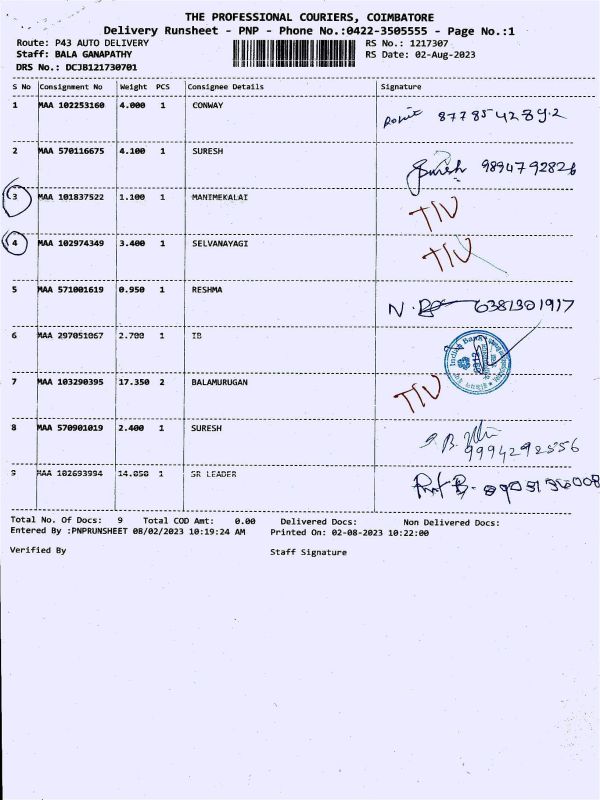 THE PROFESSIONAL COURIERS, COIMBATORE
Delivery Runsheet - PNP - Phone No.:0422-3505555 - Page No.:1
Route: P43 AUTO DELIVERY RS No.: 1217307
Staff: BALA GANAPATHY RS Date: 02-Aug-2023
DRS No.: DCJB121730701
S No Consignment No Weight PCS Consignee Details Signature
1 MAA 102253160 4.000 1 CONWAY
2 MAA 570116675 4.100 1 SURESH Suresh 9894792826
3 MAA 101837522 1.100 1 MANIMEKALAI TIV
4 MAA 102974349 3.400 1 SELVANAYAGI TIV
5 MAA 571001619 0.950 1 RESHMA N. 6381301917
6 MAA 297051067 2.700 1 IB Indian Bank
7 MAA 103290395 17.350 2 BALAMURUGAN TIV
8 MAA 570901019 2.400 1 SURESH
9994292556
9 MAA 102693994 14.050 1 SR LEADER
Total No. Of Docs: 9 Total COD Amt: 0.00 Delivered Docs: Non Delivered Docs:
Entered By :PNPRUNSHEET 08/02/2023 10:19:24 AM Printed On: 02-08-2023 10:22:00
Verified By Staff Signature